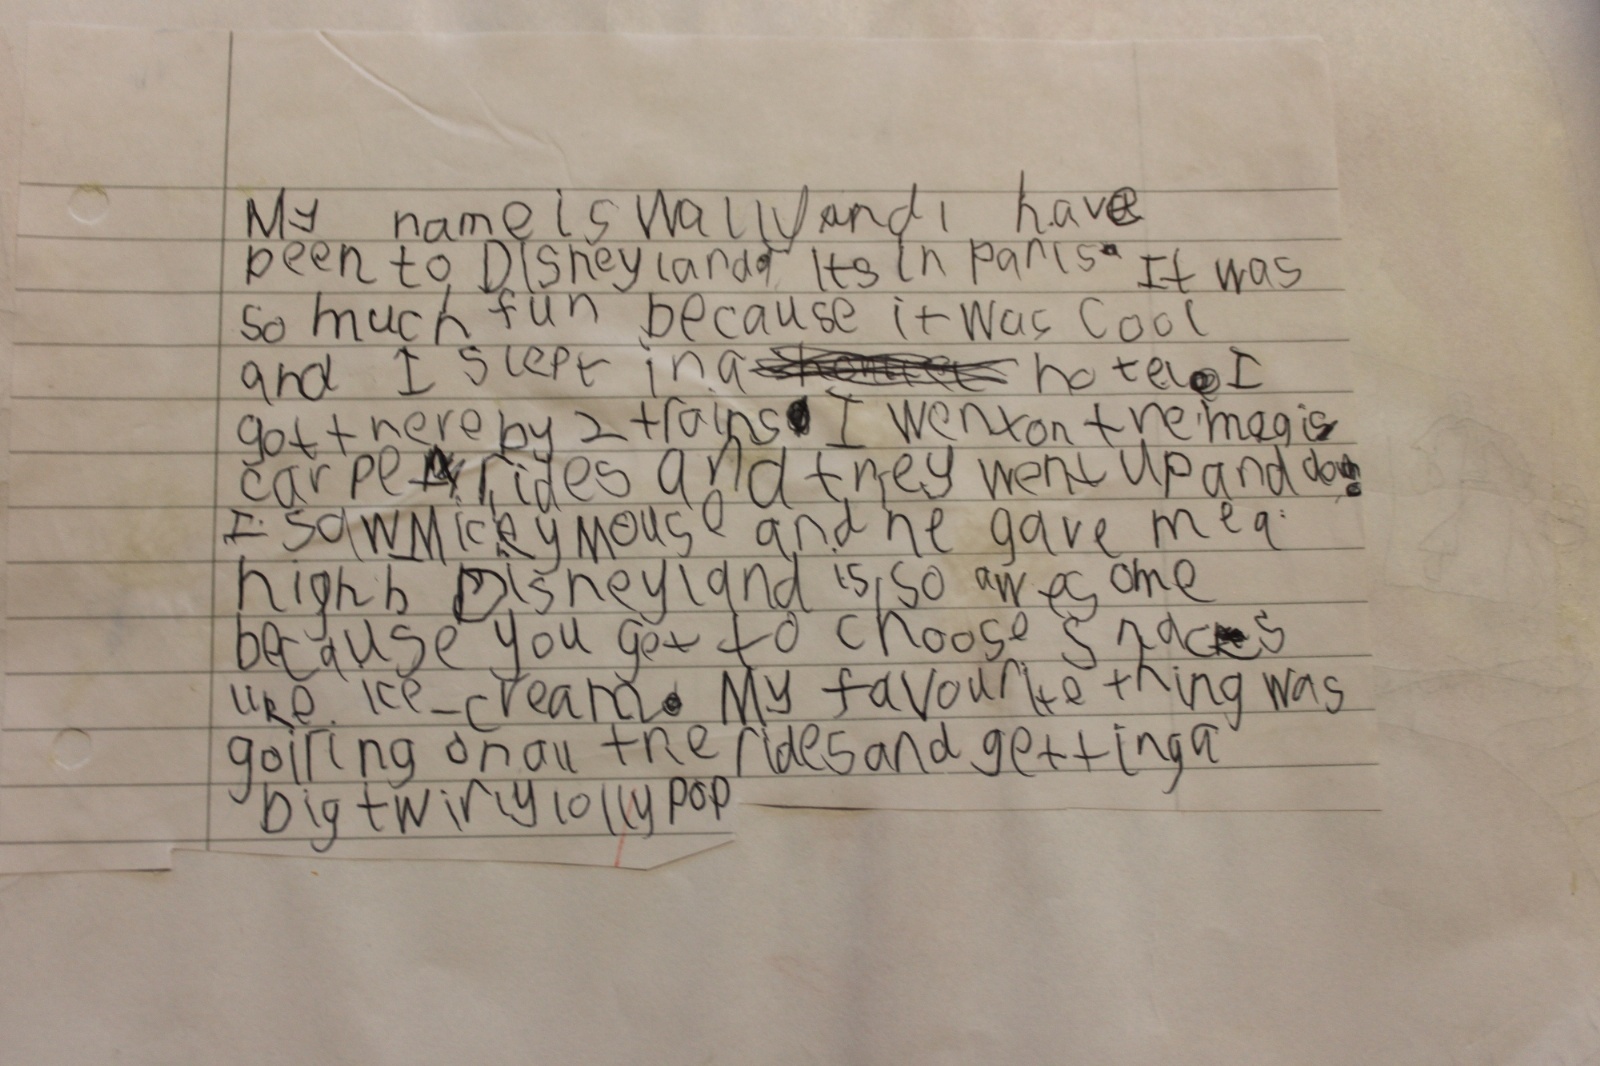 My name is Wally and i have
been to Disneyland. Its in paris. It was
so much fun because it was cool
and I slept in a hotel. I
got there by 2 trains. I went on the magis
carpet rides and they went up and down.
I saw Micky mouse and he gave me a
high h Disneyland is so awesome
because you get to choose snacks
like ice-cream. My favourite thing was
goiring on all the rides and getting a
big twirly lolly pop